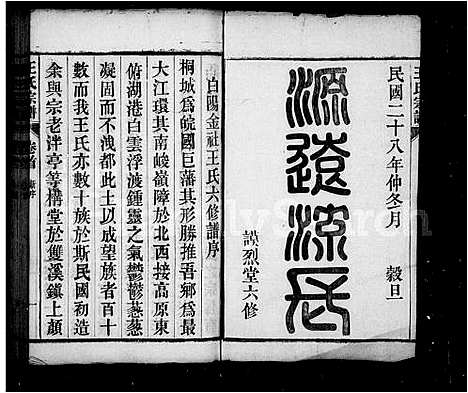 民國二十八年仲冬月 穀旦
源遠流長
謨烈堂六修
白陽金社王氏六修譜序
桐城為皖國巨藩其形勝推吾鄉為最
大江環其南峻嶺障於北西接高原東
俯湖港白雲浮渡鍾靈之氣鬱鬱蔥蔥
凝固而不洩都此土以成望族者百十
數而我王氏亦數十族於斯民國初造
余與宗老泮亭等構堂於雙溪鎮上顏
王氏宗譜 卷首